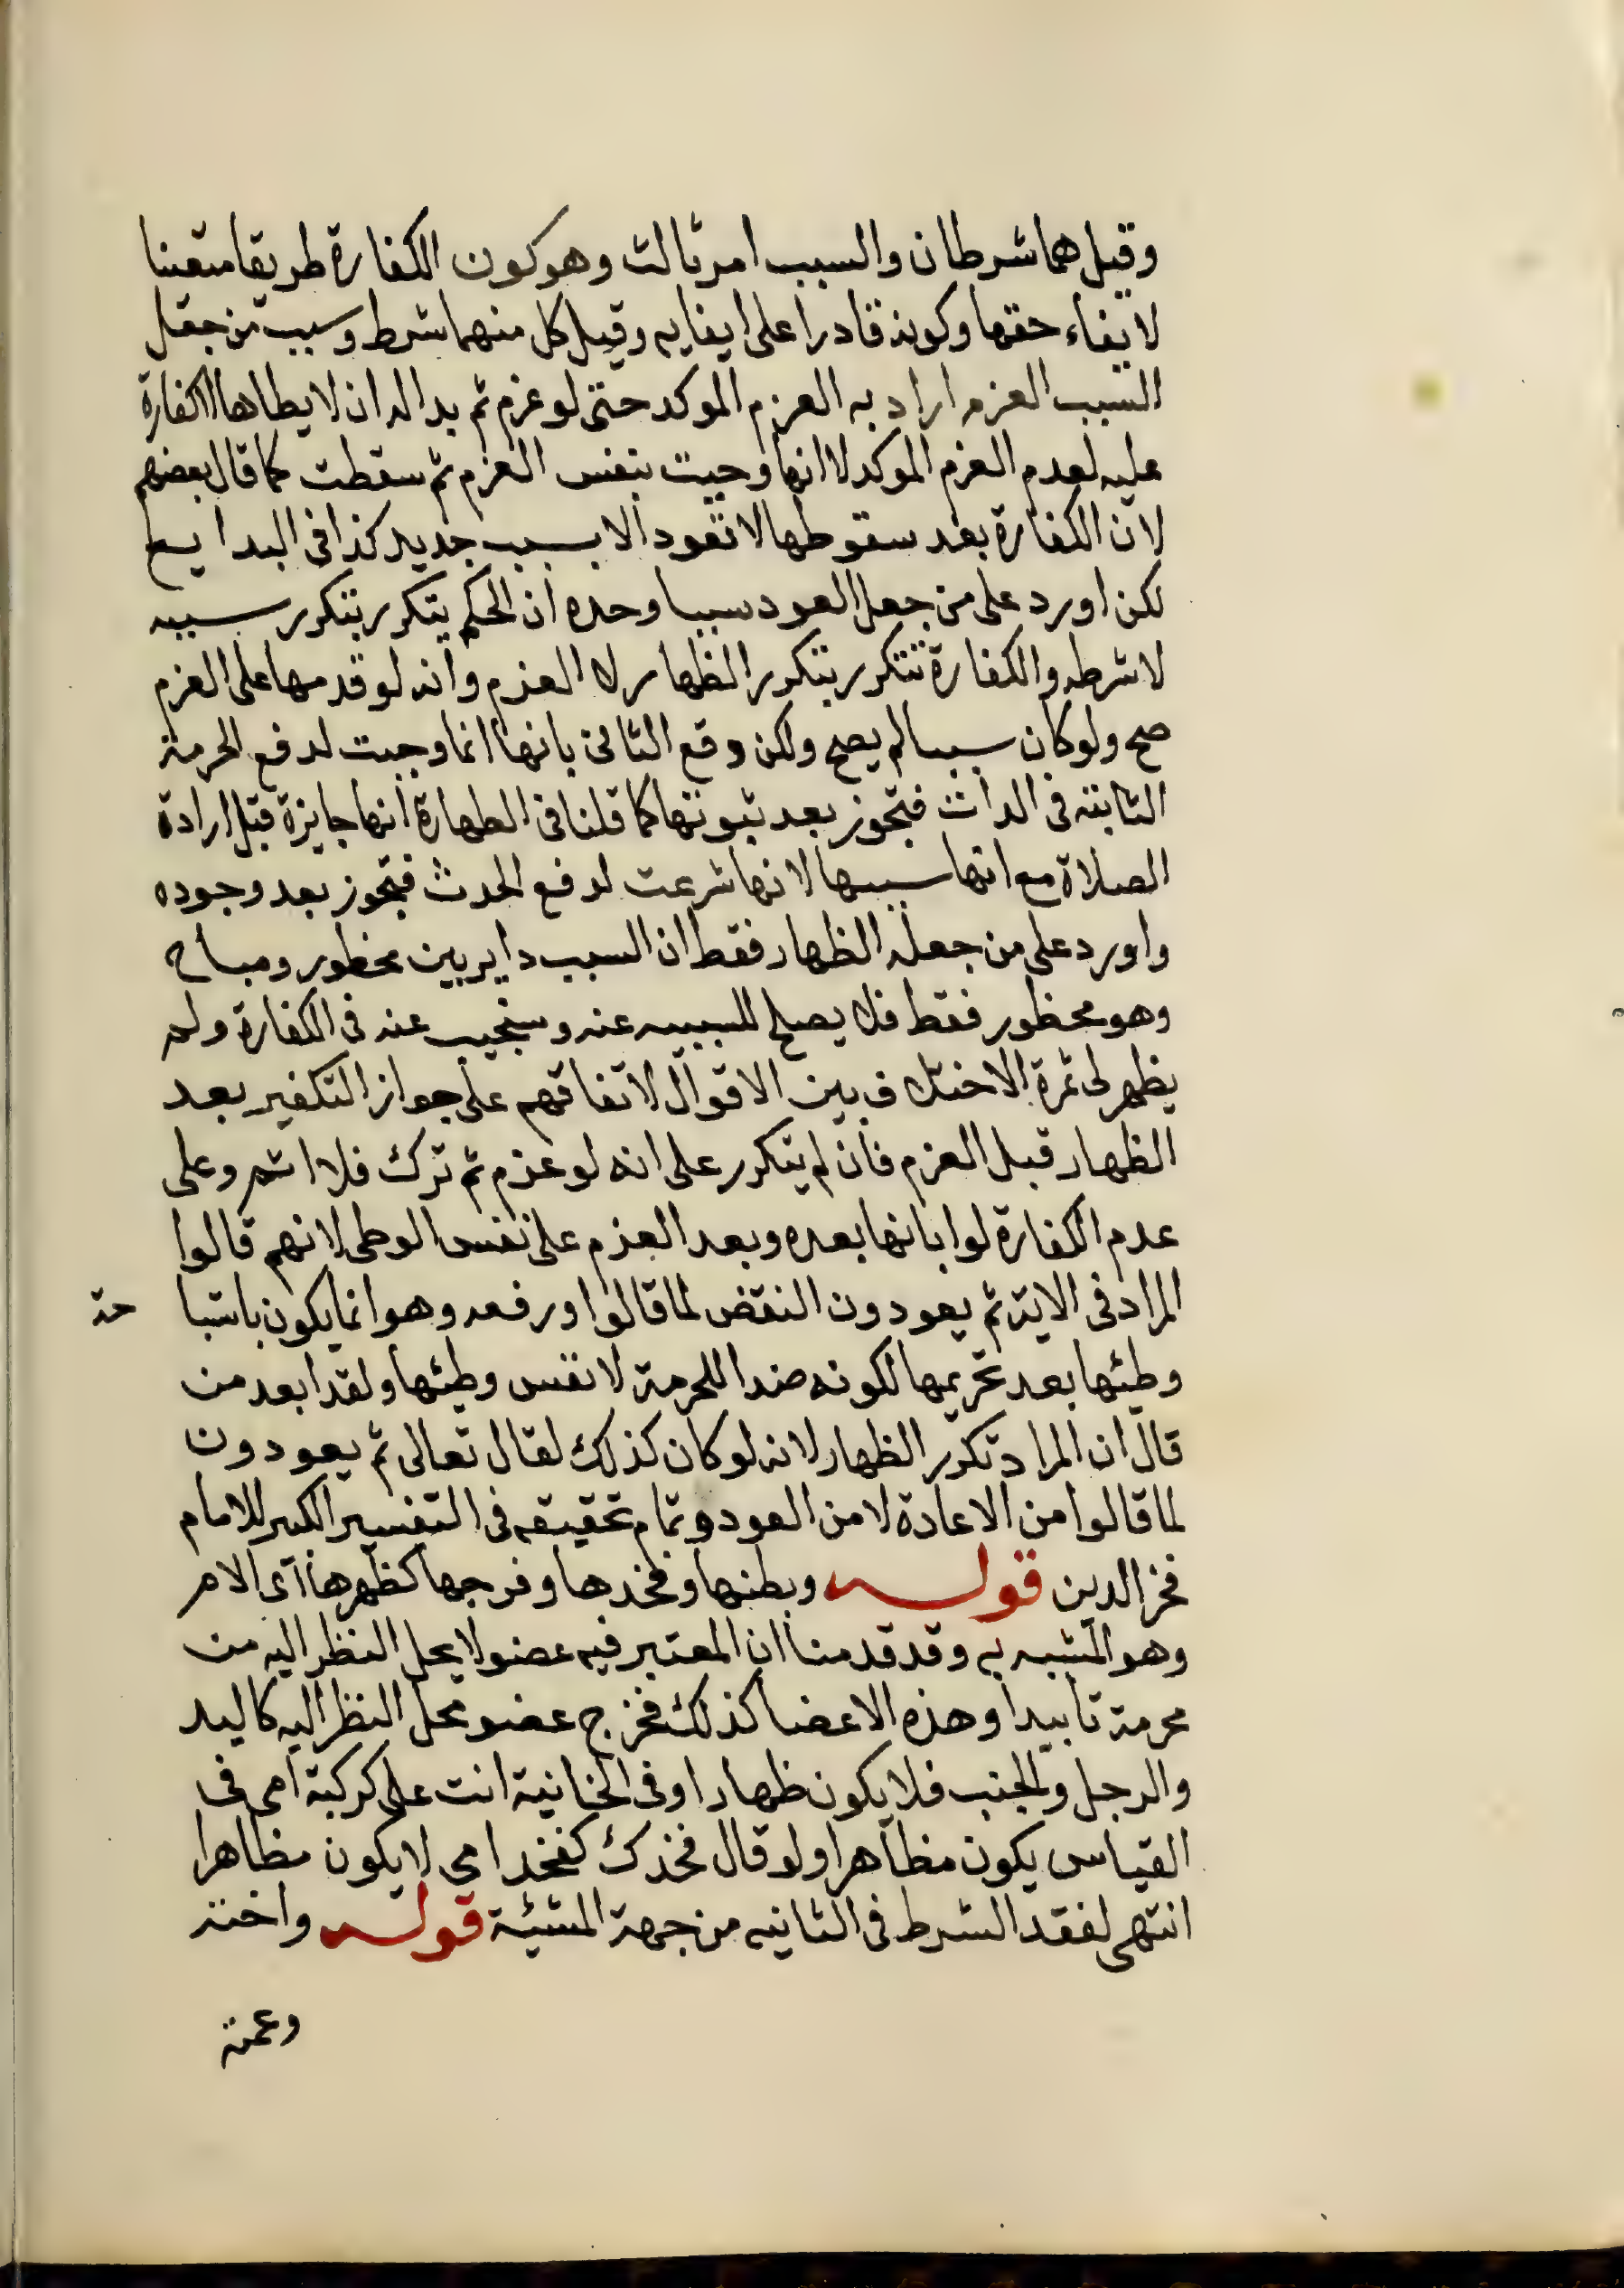 وقيل هما شرطان والسبب امر ثالث وهو كون الكفارة طريقا متعينا
لايفاء حقها وكونه قادرا على ايفايه وقيل كل منهما شرط وسبب من جعل
السبب العزم اراد به العزم الموكد حتى لو عزم ثم بدا له ان لا يطاها لا كفارة
عليه لعدم العزم الموكد لا انها وجبت بنفس العزم ثم سقطت كما قال بعضهم
لان الكفارة بعد سقوطها لا تعود الا بسبب جديد كذا فى البدايع
لكن اورد على من جعل العود سببا وحده ان الحكم يتكرر بتكرر سببه
لا شرطه والكفارة تتكرر بتكرر الظهار لا العزم وانه لو قدمها على العزم
صح ولو كان سببا لم يصح ولكن دفع الثانى بانها انما وجبت لدفع الحرمة
الثابتة فى الذات فتجوز بعد ثبوتها كما قلنا فى الطهارة انها جايزة قبل ارادة
الصلاة مع انها سببها لانها شرعت لدفع الحدث فتجوز بعد وجوده
واورد على من جعله الظهار فقط ان السبب داير بين محظور ومباح
وهو محظور فقط فلا يصلح للسببيه عنه وسنجيب عنه فى الكفارة ولم
يظهر لى ثمرة الاختلاف بين الاقوال لاتفاقهم على جواز التكفير بعد
الظهار قبل العزم فان لم يتكرر على انه لو عزم ثم ترك فلا اثم وعلى
عدم الكفارة لو ابانها بعده وبعد العزم على نفس الوطى لانهم قالوا
المراد فى الاية ثم يعودون النقض لما قالوا ورفعه وهو انما يكون باستبا حة
وطئها بعد تحريمها لكونه ضدا للحرمة لا نفس وطئها ولقد ابعد من
قال ان المراد تكرر الظهار لانه لو كان كذلك لقال تعالى ثم يعودون
لما قالوا من الاعادة لا من العود وتمام تحقيقه فى التفسير الكبير للامام
فخر الدين قوله وبطنها وفخذها وفرجها كظهرها اى الام
وهو المشبه به وقد قدمنا ان المعتبر فيه عضو لا يحل النظر اليه من
محرمة تابيدا وهذه الاعضا كذلك فخرج عضو يحل النظر اليه كاليد
والرجل والجنب فلا يكون ظهارا وفى الخانية انت على كركبة امى فى
القياس يكون مظاهرا ولو قال فخذك كفخذ امى لا يكون مظاهرا
انتهى لفقد الشرط فى الثانيه من جهة المشبة قوله واخته
وعمته